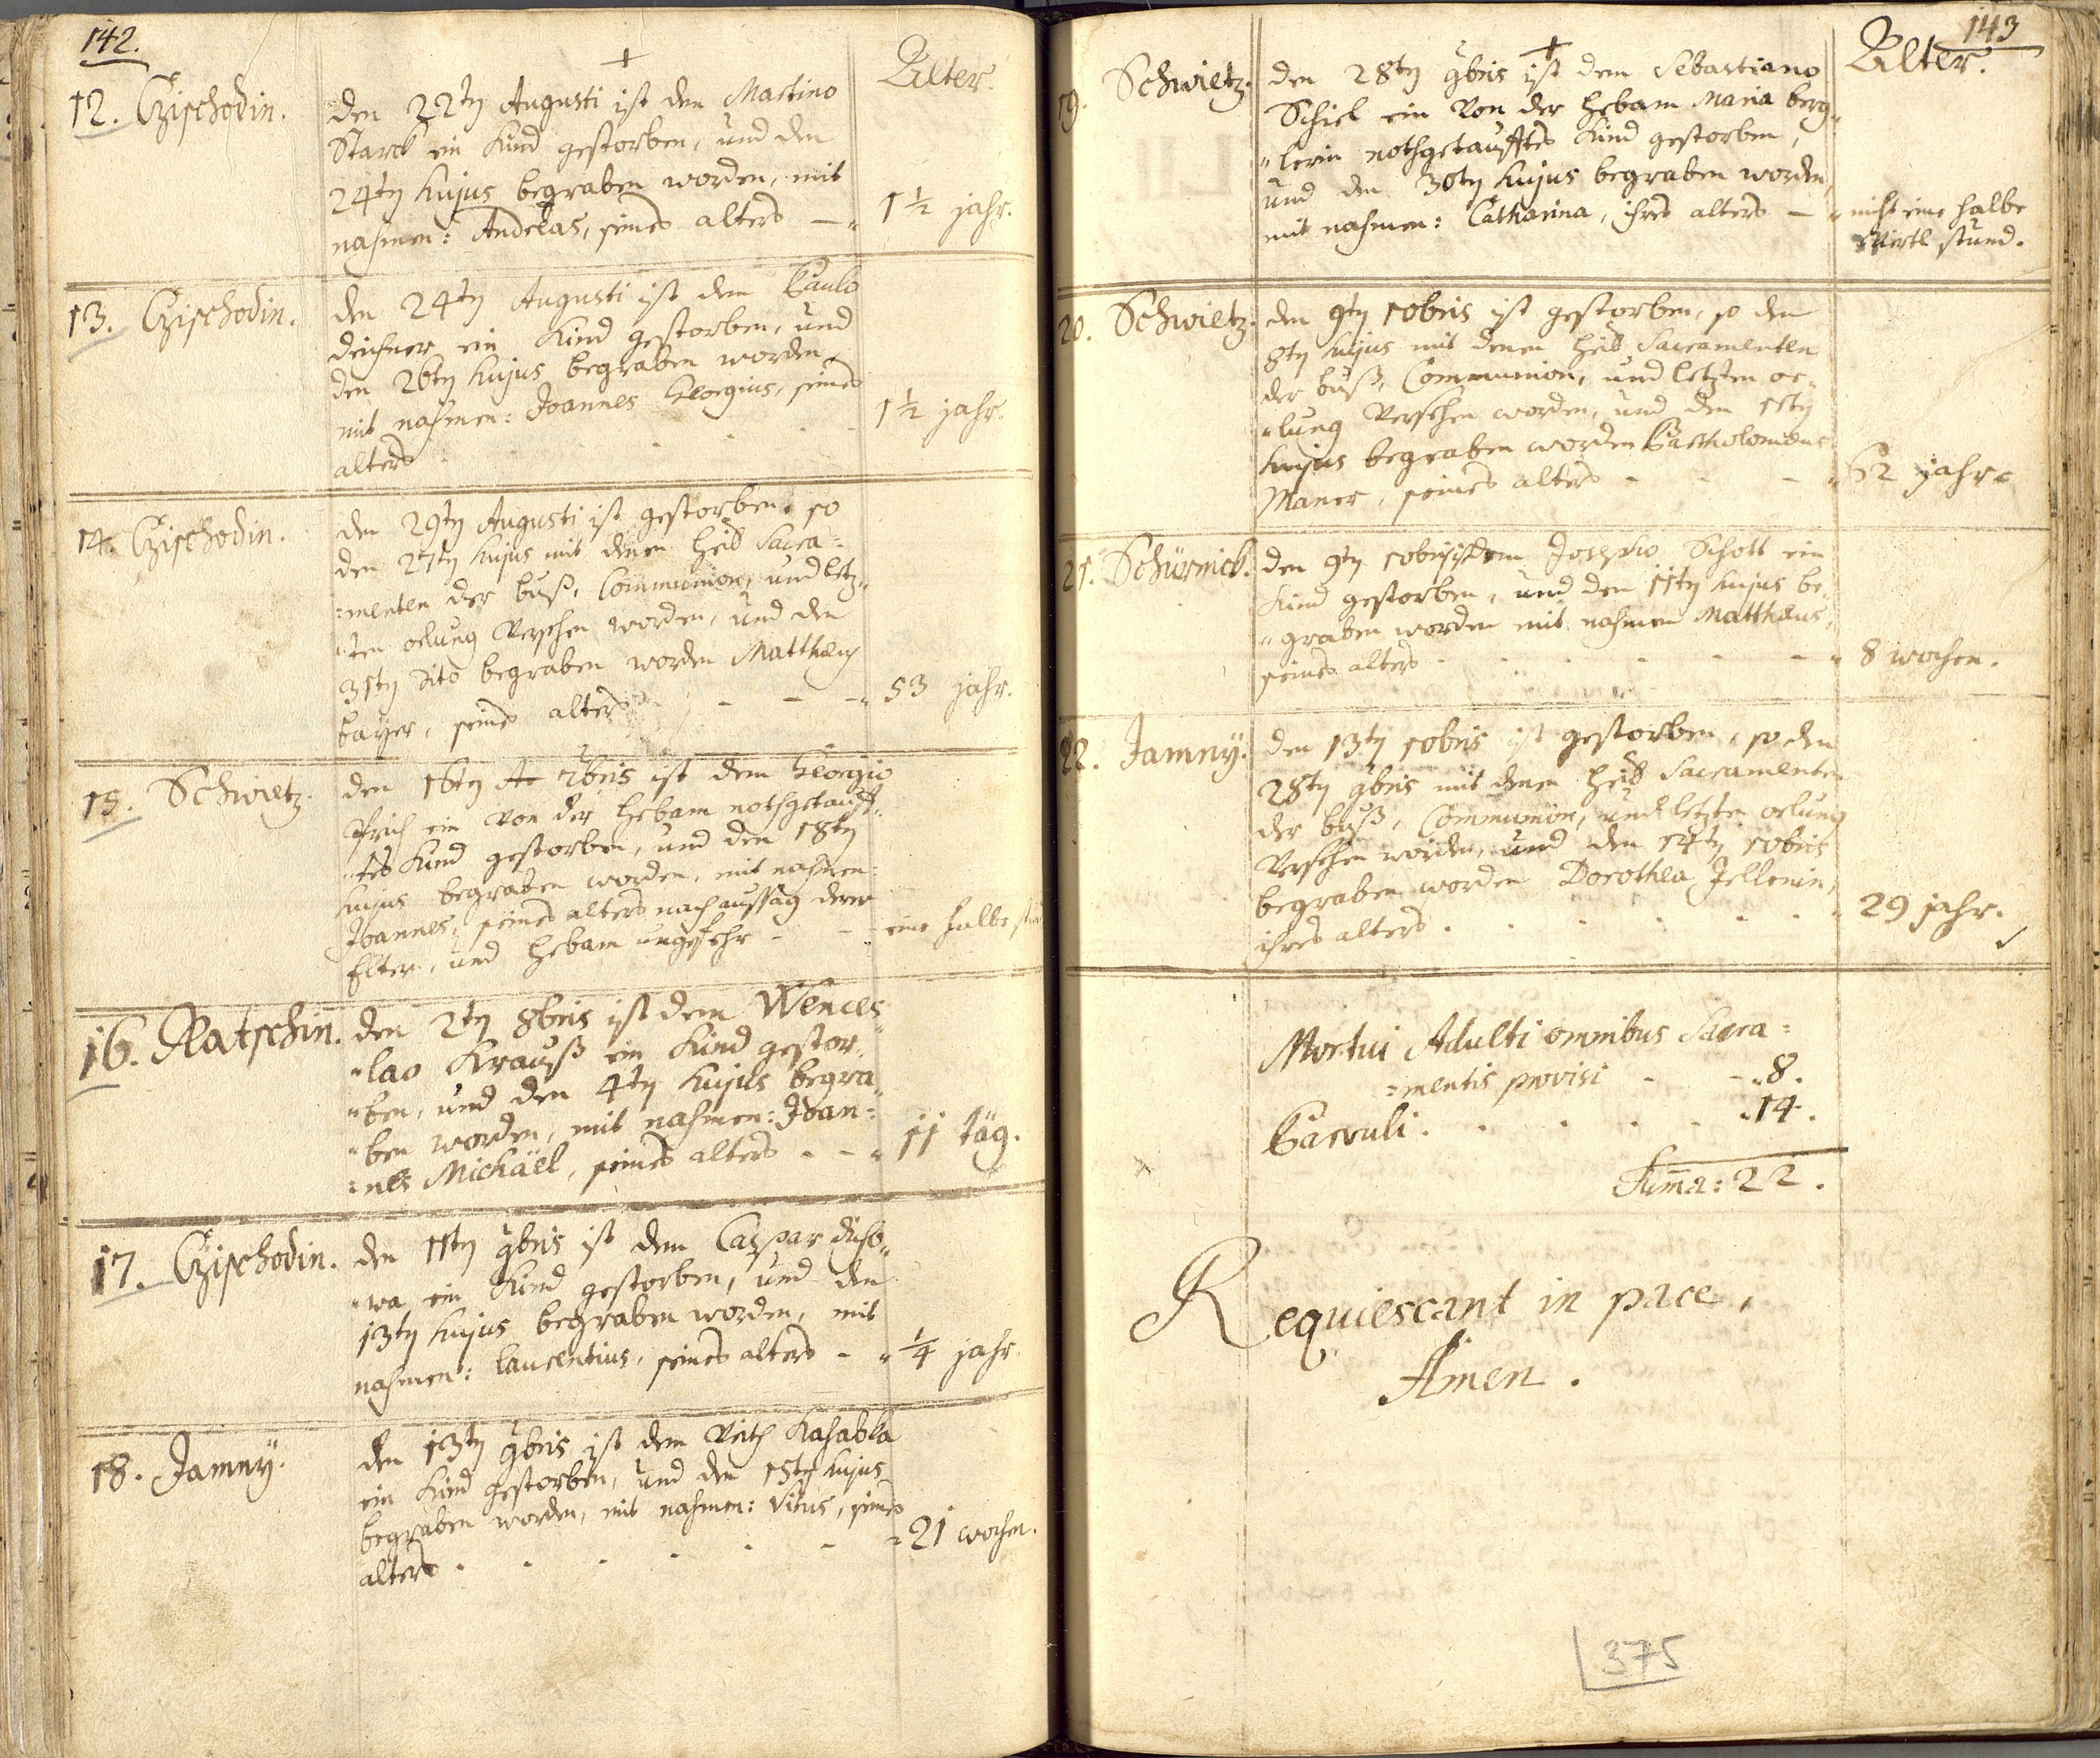 142.
+
Alter.
12. Czischodin.
den 22ten Augusti ist den Martino
Starck ein Kind gestorben, und den
24ten hujus begraben worden, mit
nahmen: Andreas, seines alters — 1½ jahr.
13. Czischodin.
den 24ten Augusti ist dem Paulo
deichner ein Kind gestorben, und
den 26ten hujus begraben worden,
mit nahmen: Joannes Georgius, seines
alters 1½ jahr.
14. Czischodin.
den 29ten Augusti ist gestorben, so
den 27ten hujus mit denen heil Sacra=
=menten der buß, Communion, und letz„
„ten oelung Versehen worden, und den
31ten dito begraben worden Matthæus
bayer, seines alters - - - 53 jahr.
15. Schwietz.
den 16ten 7bris ist dem Georgio
ein Von der hebam nothgetauff„
„tes Kind gestorben, und den 18ten
hujus begraben worden, mit nahmen:
Joannes, seines alters nach aussag derer
Elter, und hebam ungefehr - - eine halbe
16. Ratschin.
den 2ten 8bris ist dem Wences„
„lao Krauß ein Kind gestor„
„ben, und den 4ten hujus begra„
„ben worden, mit nahmen: Joan=
=nes Michäel, seines alters - - 11 täg.
17. Czischodin.
den 11ten 9bris ist dem Caspar disto„
„wa ein Kind gestorben, und den
13ten hujus begraben worden, mit
nahmen: laurentius, seines alters - ¼ jahr
18. Jamny.
den 13ten 9bris ist dem Veith Kahabka
ein Kind gestorben, und den 15ten hujus
begraben worden, mit nahmen: Vitus, seines
alters - - - - - 21 wochen.
143
+
Alter.
19. Schwietz.
den 28ten 9bris ist dem Sebastiano
Schiel ein Von der hebam Maria berg„
„lerin nothgetaufftes Kind gestorben,
und den 30ten hujus begraben worden,
mit nahmen: Catharina, ihres alters — nicht eine halbe
Viertl stund.
20. Schwietz.
den 9ten 10bris ist gestorben, so den
8ten hujus mit denen heil Sacramenten
der buß, Communion, und letzten oe„
„lung Versehen worden, und den 11ten
hujus begraben worden Bartholomæus
Maner, seines alters - - - 62 jahr.
21. Schürnick.
den 9ten 10bris ist dem Josepho Schott ein
Kind gestorben, und den 11ten hujus be„
„graben worden mit nahmen Matthæus,
seines alters - - - - - 8 wochen.
22. Jamny.
den 13ten 10bris ist gestorben, so den
28ten 9bris mit denen heil Sacramenten
der buß, Communion, und letzten oelung
Versehen worden, und den 14ten 10bris
begraben worden Dorothea Jellenin,
ihres alters - - - - - 29 jahr.
Mortui Adulti omnibus Sacra=
=mentis provisi - - „8.
Parvuli. - - - - „14.
Summa: 22.
Requiescant in pace,
Amen.
375